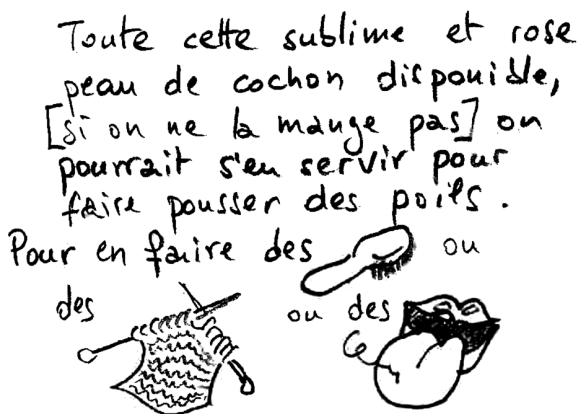 Toute cette sublime et rose
peau de cochon disponible,
[si on ne la mange pas] on
pourrait s'en servir pour
faire pousser des poils.
Pour en faire des ou
des ou des